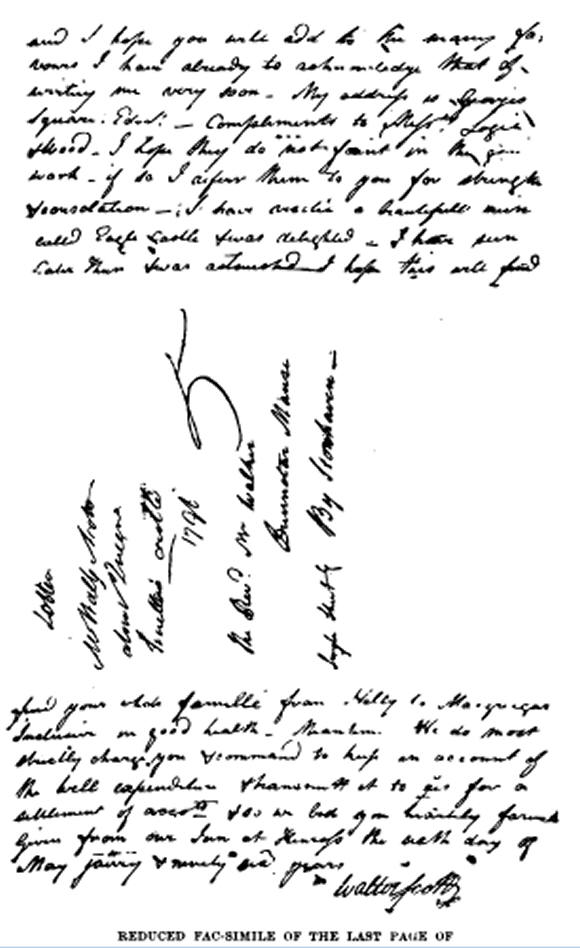 and I hope you will add to the many fa,
vours I have already to acknowledge that of
writing me very soon - My address is Georges
Square. Edinr. - Compliments to Messrs. Logie
& Wood - I hope they do not faint in the
work - if so I refer them to you for strength
& consolation - I have a beautifull ruin
called Eagle Castle & was delighted - I have seen
& was astonished I hope this will find
Letter
Mr Walter Scott
about Queen
castle
1796
The Revd. Mr Walker
Dunnotar Manse
By Stonhaven -
find your whole famille from Helly to Macgregor
Inclusive in good health - We do most
strictly charge you & command to keep an account of
the well expenditure & transmitt it to us for a
settlement of & so we bid you heartily farewell
Given from our Inn at the sixth day of
May & ninety six years
Walter Scott
REDUCED FAC-SIMILE OF THE LAST PAGE OF